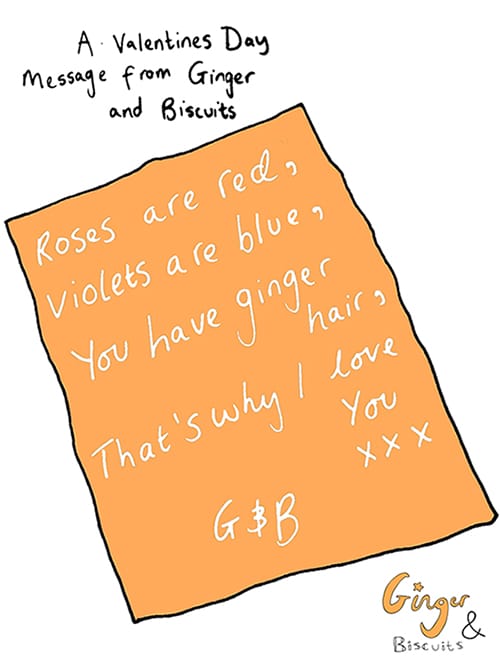 A Valentines Day
Message from Ginger
and Biscuits
Roses are red,
Violets are blue,
You have ginger
hair,
That's why I love
You
x x x
G & B
Ginger
&
Biscuits